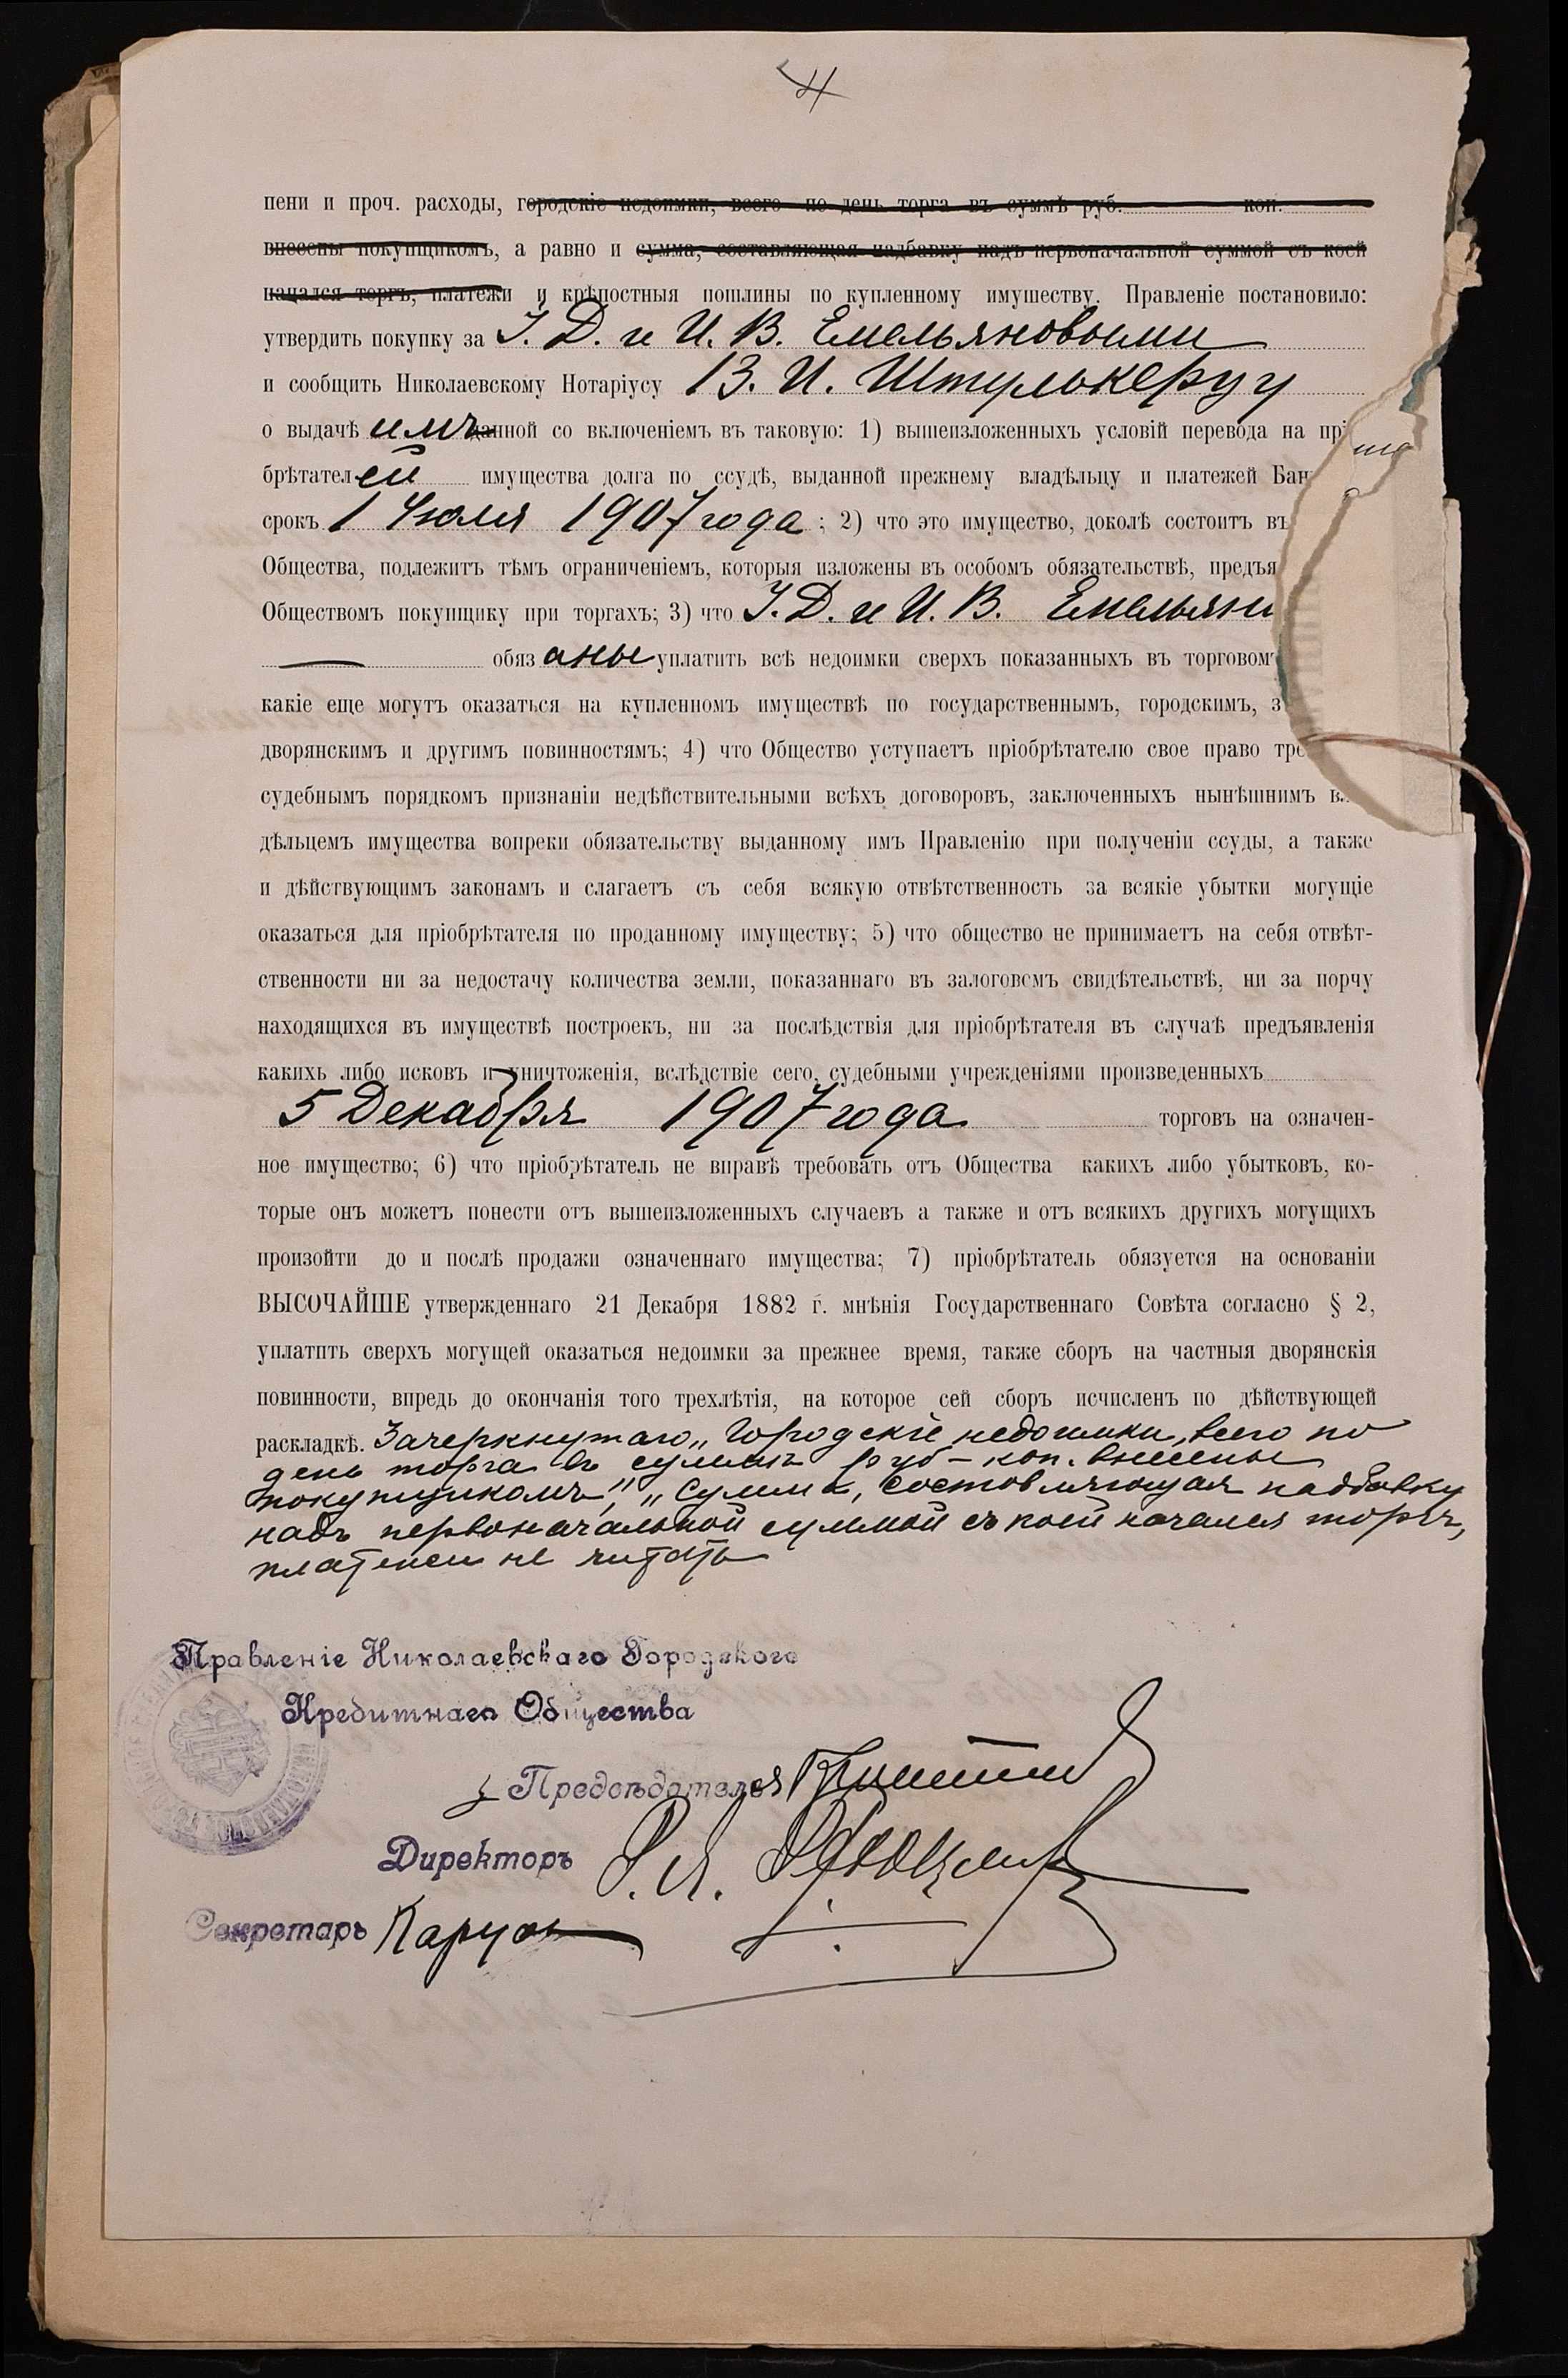 4
пени и проч. расходы, городскіе недоимки, всего по день торга въ суммѣ руб. коп.
внесены покупщикомъ, а равно и сумма, составляющая надбавку надъ первоначальной суммой съ коей
начался торгъ, платежи и крѣпостныя пошлины по купленному имуществу. Правленіе постановило:
утвердить покупку за І. Д. и И. В. Емельяновыми
и сообщить Николаевскому Нотаріусу В. И. Штулькерцу
о выдачѣ имъ данной со включеніемъ въ таковую: 1) вышеизложенныхъ условій перевода на прі
брѣтателей имущества долга по ссудѣ, выданной прежнему владѣльцу и платежей Бан
срокъ 1 Іюля 1907 года; 2) что это имущество, доколѣ состоитъ въ
Общества, подлежитъ тѣмъ ограниченіемъ, которыя изложены въ особомъ обязательствѣ, предъя
Обществомъ покупщику при торгахъ; 3) что І. Д. и И. В. Емельян
— обязаны уплатить всѣ недоимки сверхъ показанныхъ въ торговом
какіе еще могутъ оказаться на купленномъ имуществѣ по государственнымъ, городскимъ, з
дворянскимъ и другимъ повинностямъ; 4) что Общество уступаетъ пріобрѣтателю свое право тре
судебнымъ порядкомъ признаніи недѣйствительными всѣхъ договоровъ, заключенныхъ нынѣшнимъ вл
дѣльцемъ имущества вопреки обязательству выданному имъ Правленію при полученіи ссуды, а также
и дѣйствующимъ законамъ и слагаетъ съ себя всякую отвѣтственность за всякіе убытки могущіе
оказаться для пріобрѣтателя по проданному имуществу; 5) что общество не принимаетъ на себя отвѣт-
ственности ни за недостачу количества земли, показаннаго въ залоговомъ свидѣтельствѣ, ни за порчу
находящихся въ имуществѣ построекъ, ни за послѣдствія для пріобрѣтателя въ случаѣ предъявленія
какихъ либо исковъ и уничтоженія, вслѣдствіе сего, судебными учрежденіями произведенныхъ
5 Декабря 1907 года торговъ на означен-
ное имущество; 6) что пріобрѣтатель не вправѣ требовать отъ Общества какихъ либо убытковъ, ко-
торые онъ можетъ понести отъ вышеизложенныхъ случаевъ а также и отъ всякихъ другихъ могущихъ
произойти до и послѣ продажи означеннаго имущества; 7) пріобрѣтатель обязуется на основаніи
ВЫСОЧАЙШЕ утвержденнаго 21 Декабря 1882 г. мнѣнія Государственнаго Совѣта согласно § 2,
уплатить сверхъ могущей оказаться недоимки за прежнее время, также сборъ на частныя дворянскія
повинности, впредь до окончанія того трехлѣтія, на которое сей сборъ исчисленъ по дѣйствующей
раскладкѣ. Зачеркнутаго „Городскіе недоимки, всего по
день торга въ суммѣ руб — коп. внесены
покупщикомъ", „Сумма, составляющая надбавку
надъ первоначальной суммой съ коей начался торгъ,
платежи не читать
Правленіе Николаевскаго Городского
Кредитнаго Общества
Предсѣдателя
Директоръ
Секретарь